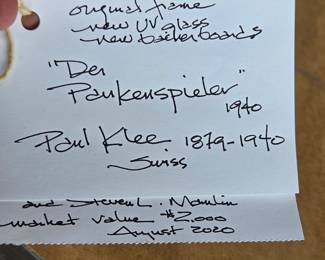 original frame
new UV glass
new backer boards
"Der
Paukenspieler"
1940
Paul Klee. 1879-1940
Swiss
and Steven L.
market value $2,000
August 2020